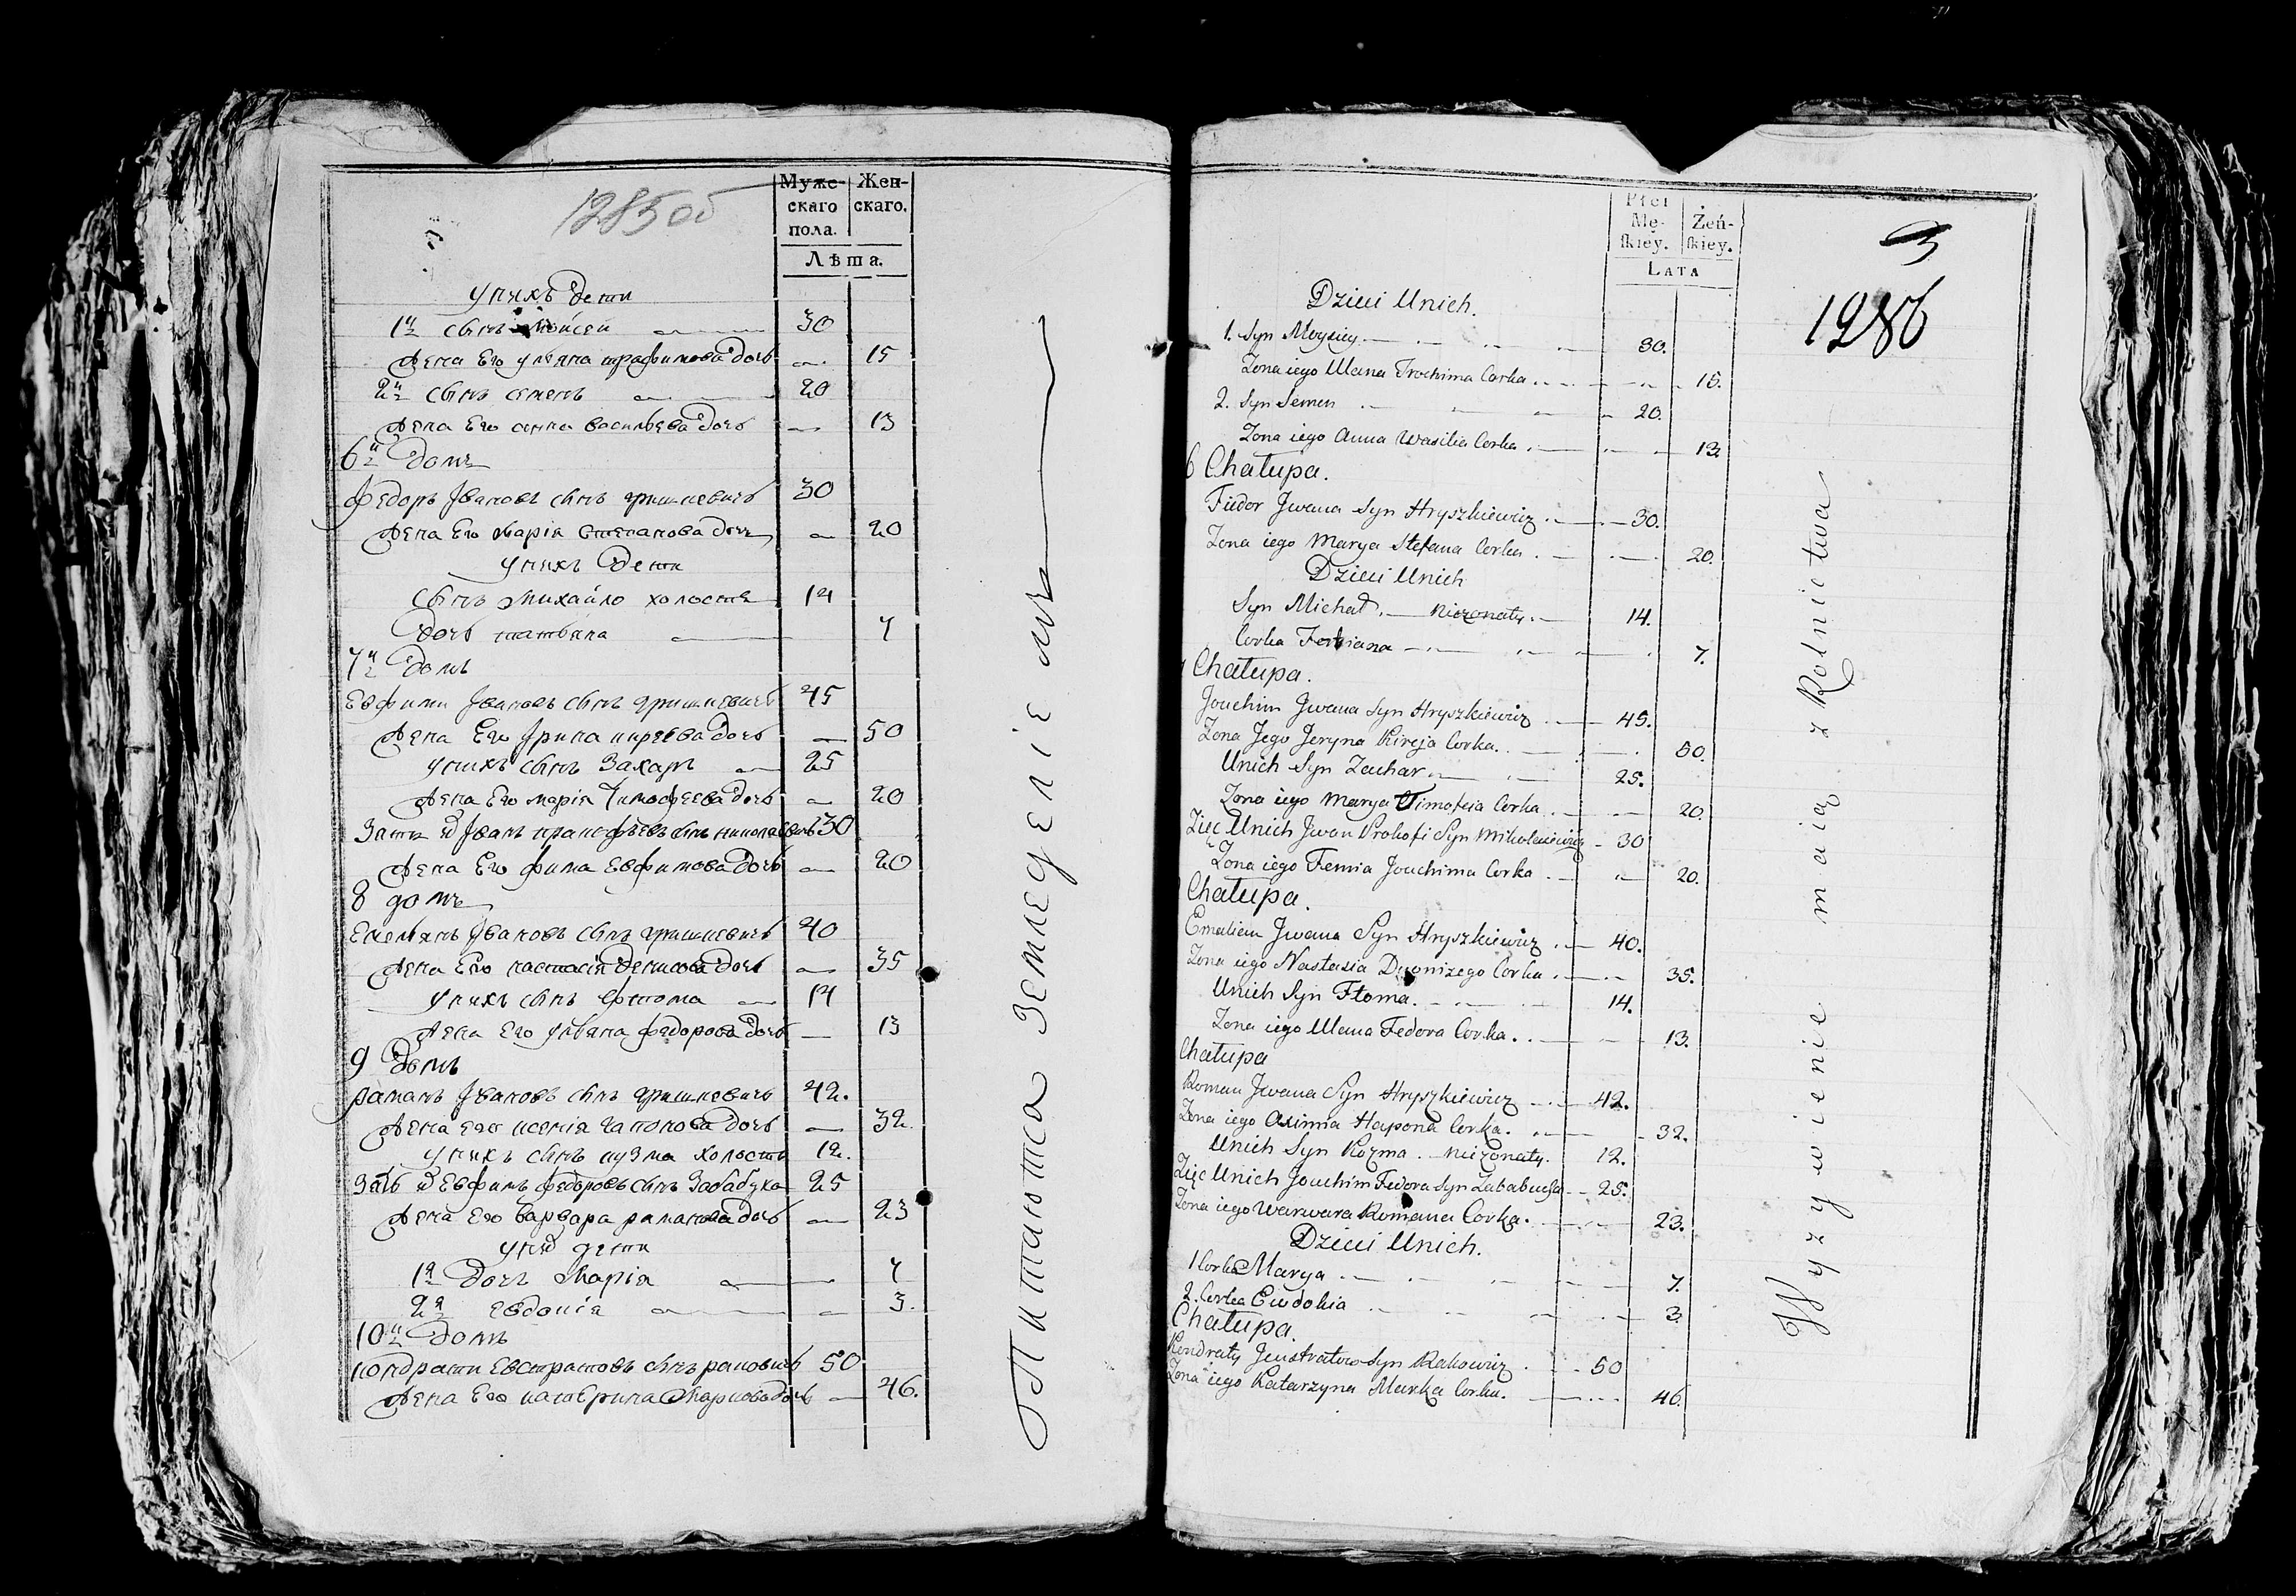 1285об
Муже-
скаго
пола.
Жен-
скаго.
Лѣта.
у нихъ дети
1й сынъ мойсей 30
жена Его ульяна трафимова дочь 15
2й сынъ семенъ 20
жена Его анна васильева дочь 13
6й домъ
федоръ Ивановъ сынъ гришкевичъ 30
жена Его марія степанова дочь 20
у нихъ дети
сынъ михайло холостъ 14
дочь татьяна 7
7й домъ
евфими Ивановъ сынъ гришкевичъ 45
жена Его Ирина киреева дочь 50
у нихъ сынъ Захаръ 25
жена Его марія тимофеева дочь 20
Зять Иванъ пракофьевъ сынъ николаевичъ 30
жена Его фима евфимова дочь 20
8 домъ
емельянъ Ивановъ сынъ гришкевичъ 40
жена Его настасія денисова дочь 35
у нихъ сынъ фтома 14
жена Его ульяна федорова дочь 13
9 домъ
раманъ Ивановъ сынъ гришкевичъ 42.
жена его ксенія гапонова дочь 32
у нихъ сынъ кузма холостъ 12.
Зять евфимъ федоровъ сынъ Забабуха 25
жена Его варвара раманова дочь 23
у них дети
1я дочь марія 7
2я евдокія 3.
10й домъ
кондрати евстратовъ сынъ раковичъ 50
жена Его катерина маркова дочь 46.
Питаютса Земледеліемъ
Płci
Mę-
skiey.
Żeń-
skiey.
LATA
3
1286
Dzieci Unich.
1. Syn Moysiey 30.
Zona iego Ulana Trochima Corka 15.
2. Syn Semen 20.
Zona iego Anna Wasilia Corka 13.
6 Chałupa.
Fiedor Jwana Syn Hryszkiewicz 30.
Zona iego Marya Stefana Corka 20.
Dzieci Unich
Syn Michał niezonaty 14.
Corka Tetiana 7.
Chałupa.
Jouchim Jwana Syn Hryszkiewicz 45.
Zona Jego Jeryna Kireja Corka. 50.
Unich Syn Zachar 25.
Zona iego Marya Timofeia Corka 20.
Zięć Unich Jwan Prokofi Syn Mikołaiewicz 30
Zona iego Femia Jouchima Corka 20.
Chałupa.
Emalian Jwana Syn Hryszkiewicz 40.
Zona iego Nastasia Dyonizego Corka 35.
Unich Syn Ftoma. 14.
Zona iego Ulana Fedora Corka. 13.
Chałupa
Roman Jwana Syn Hryszkiewicz 42.
Zona iego Axinia Hapona Corka. 32.
Unich Syn Kozma. niezonaty. 12.
Zięć Unich Jouchim Fedora Syn Zababucha 25.
Zona iego Warwara Romana Corka. 23.
Dzieci Unich.
1 Corka Marya 7.
2. Corka Ewdokia 3.
Chałupa.
Kondraty Jewstratow Syn Rakowicz 50
Zona iego Katarzyna Marka Corka. 46.
Wyzywienie maią z Rolnictwa